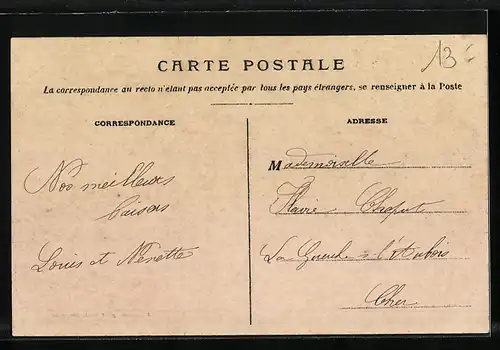 13
CARTE POSTALE
La correspondance au recto n'étant pas acceptée par tous les pays étrangers, se renseigner à la Poste
CORRESPONDANCE
Nos meilleurs
baisers
Louis et Nénette
ADRESSE
Mademoiselle
Flavie
La Guerche s l'Aubois
Cher